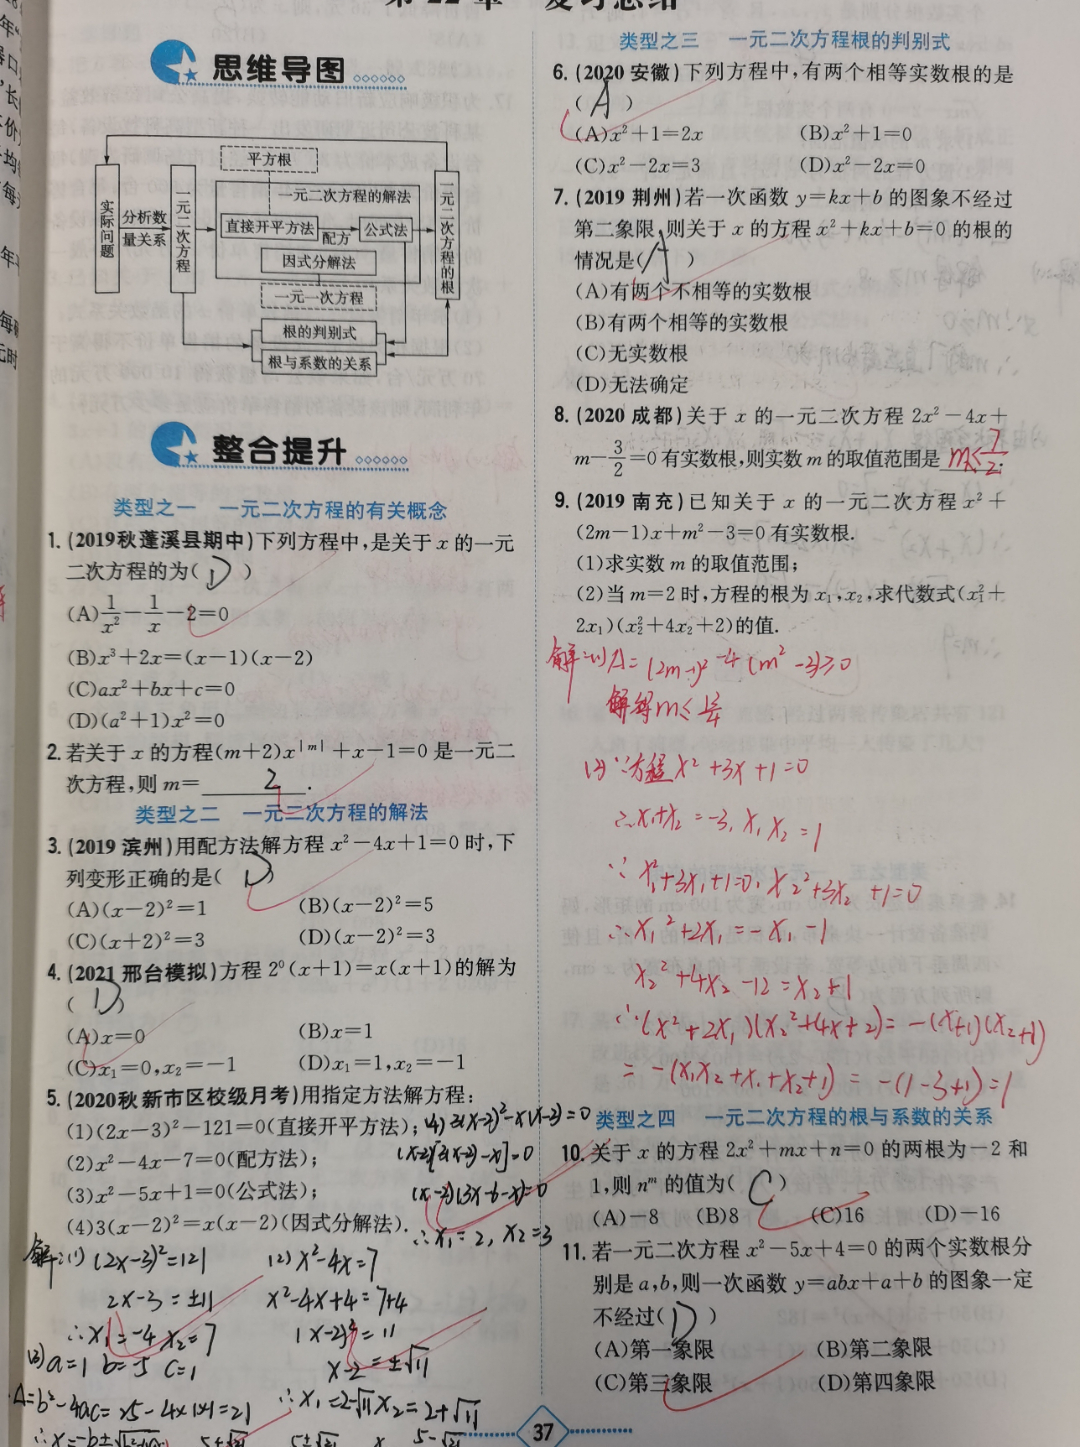 思维导图
平方根
一元二次方程的解法
实际问题
分析数量关系
一元二次方程
直接开平方法
配方
公式法
因式分解法
一元一次方程
一元二次方程的根
根的判别式
根与系数的关系
整合提升
类型之一 一元二次方程的有关概念
1. (2019秋蓬溪县期中)下列方程中,是关于 x 的一元
二次方程的为( D )
(A) 1/x² − 1/x − 2=0
(B)x³+2x=(x−1)(x−2)
(C)ax²+bx+c=0
(D)(a²+1)x²=0
2. 若关于 x 的方程(m+2)x^|m|+x−1=0 是一元二
次方程,则 m= 2 .
类型之二 一元二次方程的解法
3. (2019 滨州)用配方法解方程 x²−4x+1=0 时,下
列变形正确的是( D )
(A)(x−2)²=1 (B)(x−2)²=5
(C)(x+2)²=3 (D)(x−2)²=3
4. (2021 邢台模拟)方程 2⁰(x+1)=x(x+1)的解为
( D )
(A)x=0 (B)x=1
(C)x₁=0,x₂=−1 (D)x₁=1,x₂=−1
5. (2020秋新市区校级月考)用指定方法解方程:
(1)(2x−3)²−121=0(直接开平方法);
(2)x²−4x−7=0(配方法);
(3)x²−5x+1=0(公式法);
(4)3(x−2)²=x(x−2)(因式分解法).
(4) 3(x-2)²-x(x-2)=0
(x-2)[3(x-2)-x]=0
(x-2)(3x-6-x)=0
∴x₁=2, x₂=3
解:(1) (2x-3)²=121
2x-3=±11
∴x₁=-4 x₂=7
(2) x²-4x=7
x²-4x+4=7+4
(x-2)²=11
x-2=±√11
∴x₁=2-√11 x₂=2+√11
(3) a=1 b=-5 c=1
Δ=b²-4ac=25-4×1×1=21
类型之三 一元二次方程根的判别式
6. (2020 安徽)下列方程中,有两个相等实数根的是
( A )
(A)x²+1=2x (B)x²+1=0
(C)x²−2x=3 (D)x²−2x=0
7. (2019 荆州)若一次函数 y=kx+b 的图象不经过
第二象限,则关于 x 的方程 x²+kx+b=0 的根的
情况是( A )
(A)有两个不相等的实数根
(B)有两个相等的实数根
(C)无实数根
(D)无法确定
8. (2020 成都)关于 x 的一元二次方程 2x²−4x+
m−3/2=0 有实数根,则实数 m 的取值范围是 m≤7/2.
9. (2019 南充)已知关于 x 的一元二次方程 x²+
(2m−1)x+m²−3=0 有实数根.
(1)求实数 m 的取值范围;
(2)当 m=2 时,方程的根为 x₁,x₂,求代数式(x₁²+
2x₁)(x₂²+4x₂+2)的值.
解:(1)Δ=(2m-1)²-4(m²-3)≥0
解得m≤
(2)∵方程x²+3x+1=0
∴x₁+x₂=-3, x₁x₂=1
∵x₁²+3x₁+1=0, x₂²+3x₂+1=0
∴x₁²+2x₁=-x₁-1
x₂²+4x₂-12=x₂+1
∴(x²+2x₁)(x₂²+4x+2)=-(x₁+1)(x₂+1)
=-(x₁x₂+x₁+x₂+1)=-(1-3+1)=1
类型之四 一元二次方程的根与系数的关系
10. 关于 x 的方程 2x²+mx+n=0 的两根为−2 和
1,则 nᵐ 的值为( C )
(A)−8 (B)8 (C)16 (D)−16
11. 若一元二次方程 x²−5x+4=0 的两个实数根分
别是 a,b,则一次函数 y=abx+a+b 的图象一定
不经过( D )
(A)第一象限 (B)第二象限
(C)第三象限 (D)第四象限
37